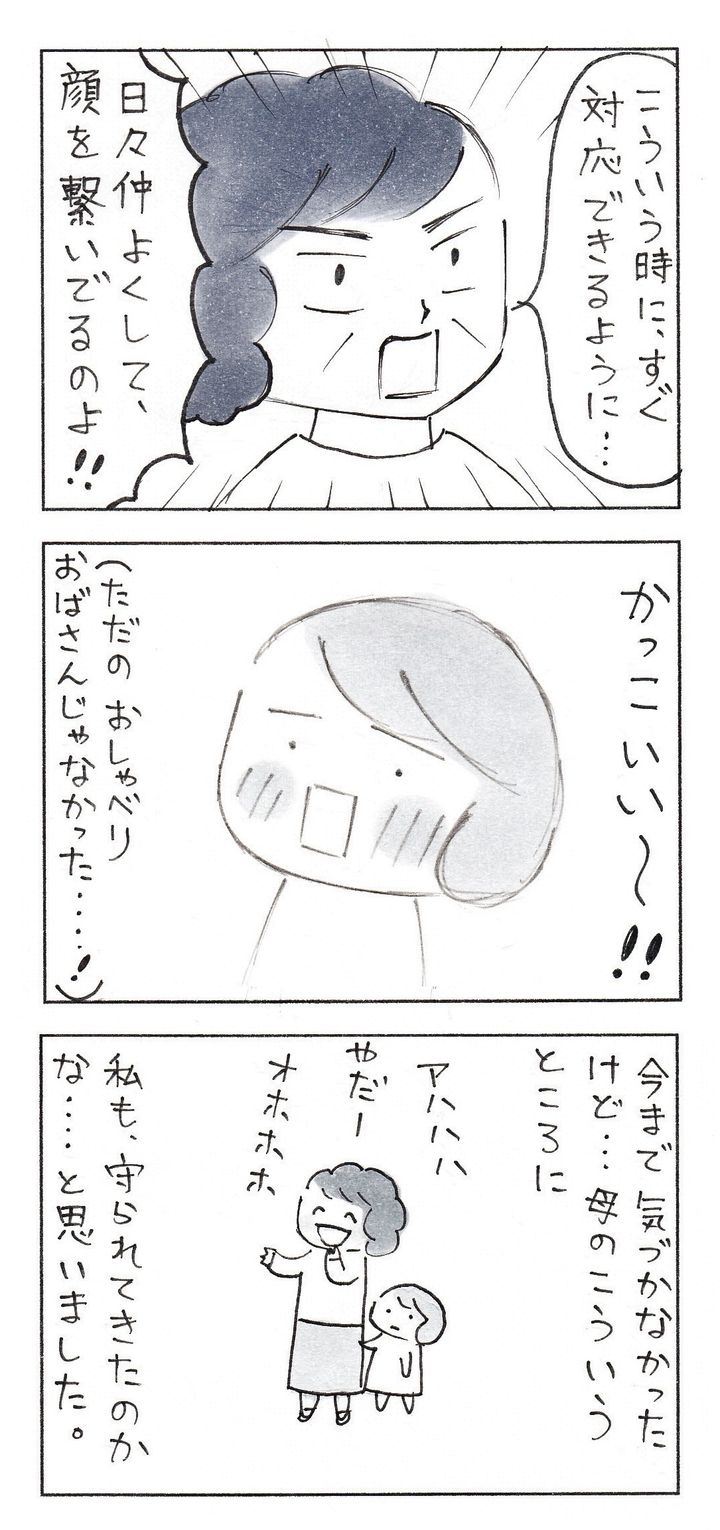 こういう時に、すぐ
対応できるように…
日々仲よくして、
顔を繋いでるのよ!!
かっこいい〜!!
(ただの おしゃべり
おばさんじゃなかった……!)
今まで 気づかなかった
けど… 母のこういう
ところに
アハハハ
やだー
オホホホ
私も、守られてきたのか
な……と思いました。